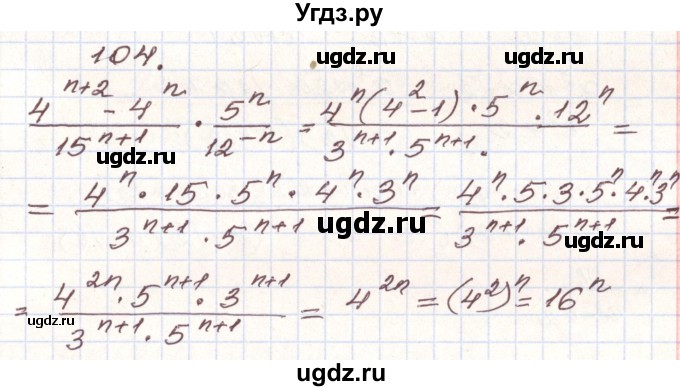 Угдз.ру
104. ugdz.ru ugdz.ru
(4^(n+2) - 4^n)/15^(n+1) · 5^n/12^(-n) = (4^n(4^2-1) · 5^n · 12^n)/(3^(n+1) · 5^(n+1) ·) =
ugdz.ru ugdz.ru
= (4^n · 15 · 5^n · 4^n · 3^n)/(3^(n+1) · 5^(n+1)) = (4^n · 5 · 3 · 5^n · 4^n · 3^n)/(3^(n+1) · 5^(n+1)) =
ugdz.ru ugdz.ru
= (4^(2n) · 5^(n+1) · 3^(n+1))/(3^(n+1) · 5^(n+1)) = 4^(2n) = (4^2)^n = 16^n
ugdz.ru ugdz.ru
ugdz.ru